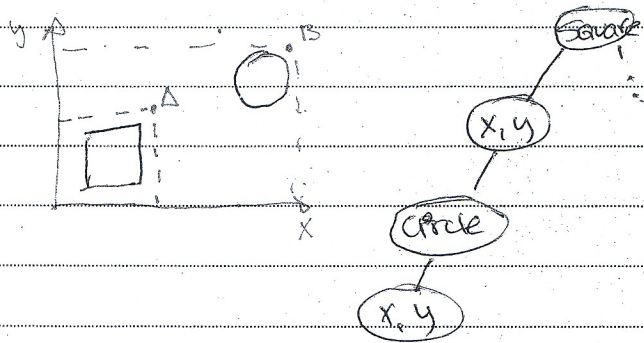 y
B
A
X
Square
x, y
Circle
x, y